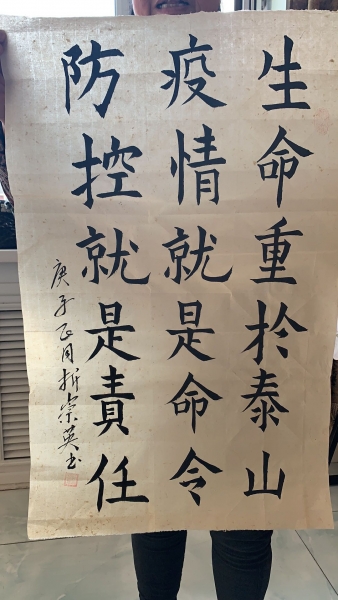 生命重於泰山
疫情就是命令
防控就是責任
庚子正月折崇英书